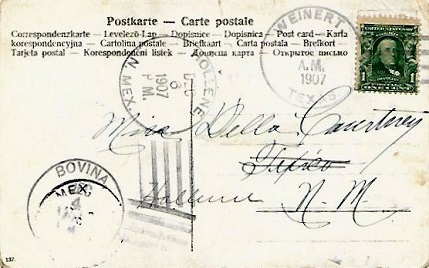 Postkarte — Carte postale
Correspondenzkarte — Levelező-Lap — Dopisnice — Dopisnica — Post card — Karta
korespondencyjna — Cartolina postale — Briefkaart — Carta postala — Brefkort
Tarjeta postal — Korespondenční listek — Дописна карта — Открытое письмо
WEINERT
A.M.
1907
TEXAS
HOLLENE
DEC
8
1907
P.M.
N. MEX.
1
Miss Della Courtney
Texico
Hollene N. M.
BOVINA
MEX.
4
137